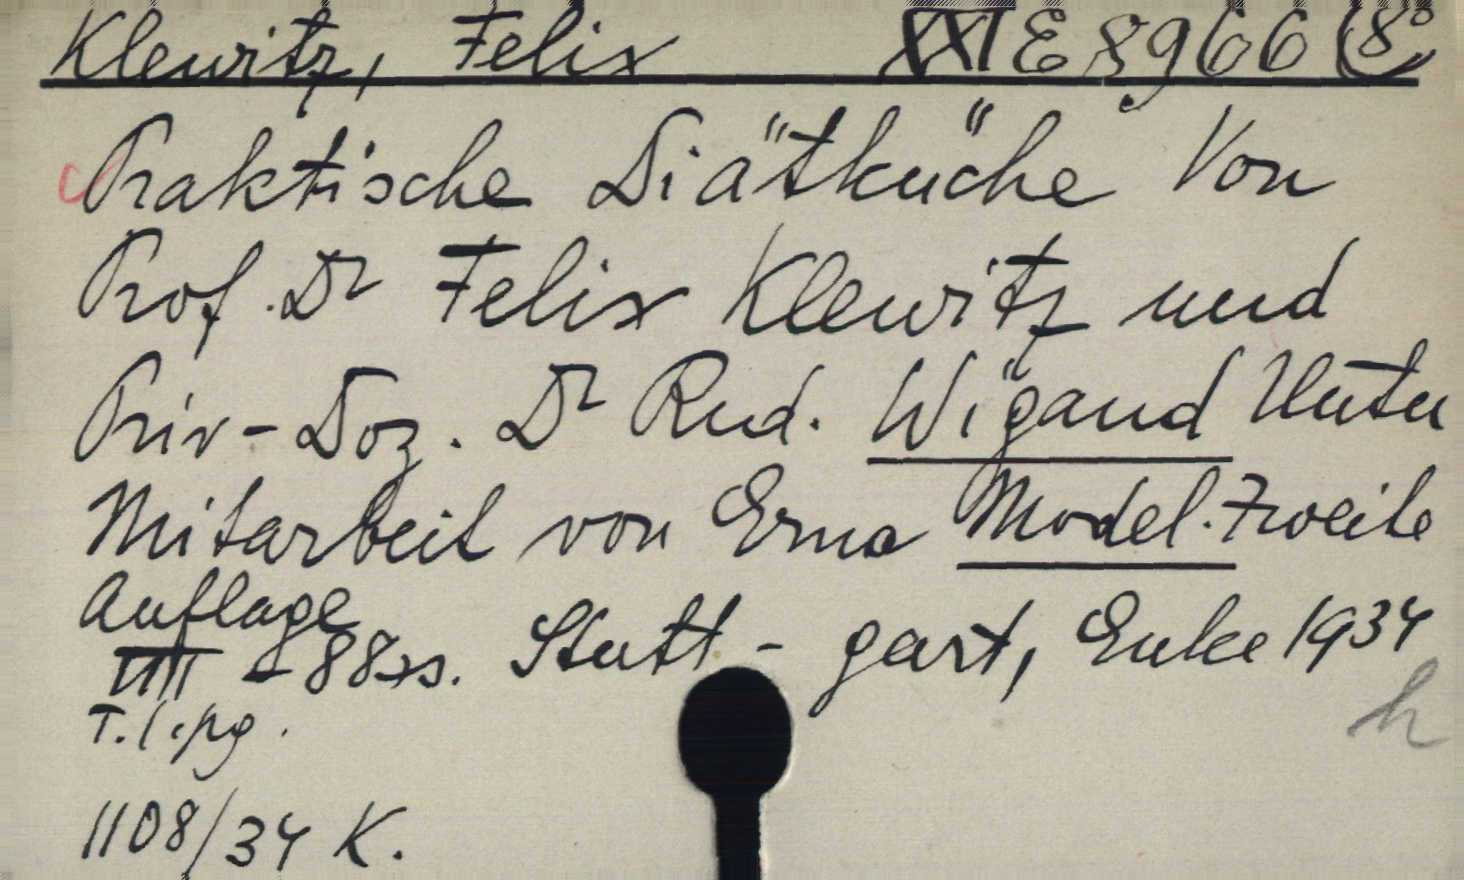 Klewitz, Felix XXI E 8966 (8°
Praktische Diätküche Von
Prof. Dr Felix Klewitz und
Priv-Doz. Dr Rud. Wigand Unter
Mitarbeit von Erna Model. Zweite
Auflage
VIII - 88 ss. Stutt- gart, Enke 1934
1108/34 K.
h